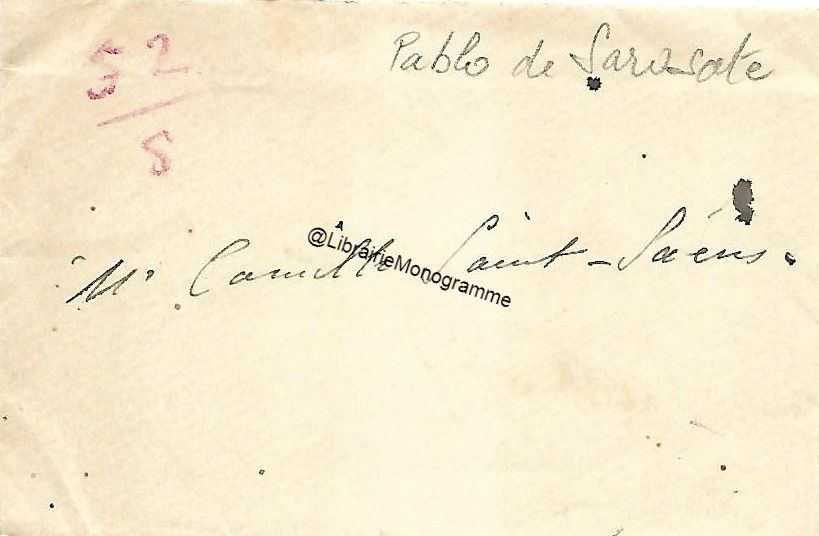 52
5
Pablo de Sarasate
Mr Camille Saint-Saëns.
@LibrairieMonogramme